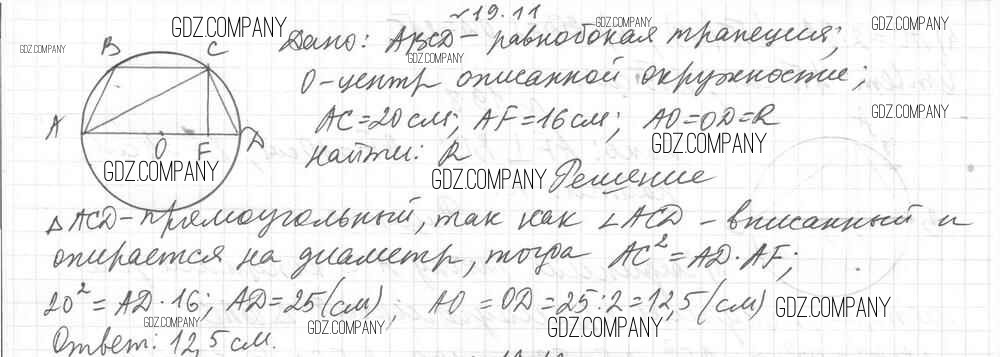 №19.11
GDZ.COMPANY GDZ.COMPANY GDZ.COMPANY
Дано: ABCD - равнобокая трапеция;
GDZ.COMPANY GDZ.COMPANY
B C
O-центр описанной окружностие;
AC=20см; AF=16см; AO=OD=R
GDZ.COMPANY
A O F D
Найти: R
GDZ.COMPANY
GDZ.COMPANY GDZ.COMPANY Решение
△ACD-прямоугольный, так как ∠ACD - вписанный и
опирается на диаметр, тогда AC²=AD·AF;
20²=AD·16; AD=25(см); AO=OD=25:2=12,5(см)
GDZ.COMPANY GDZ.COMPANY GDZ.COMPANY GDZ.COMPANY
Ответ: 12,5см.